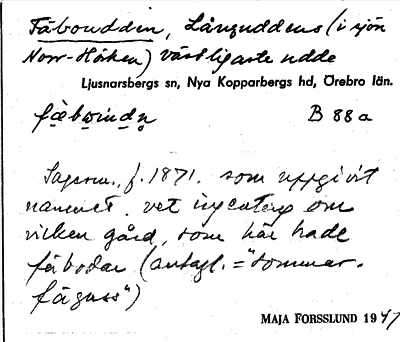 Fäbouddin, Långuddens (i sjön
Norr-Höken) västligaste udde
Ljusnarsbergs sn, Nya Kopparbergs hd, Örebro län.
fæ̀bωindn̥ B 88 a
Sagesm., f. 1871. som uppgivit
namnet. vet ingenting om
vilken gård, som här hade
fäbodar (antagl. = "sommar-
fägass")
MAJA FORSSLUND 1947